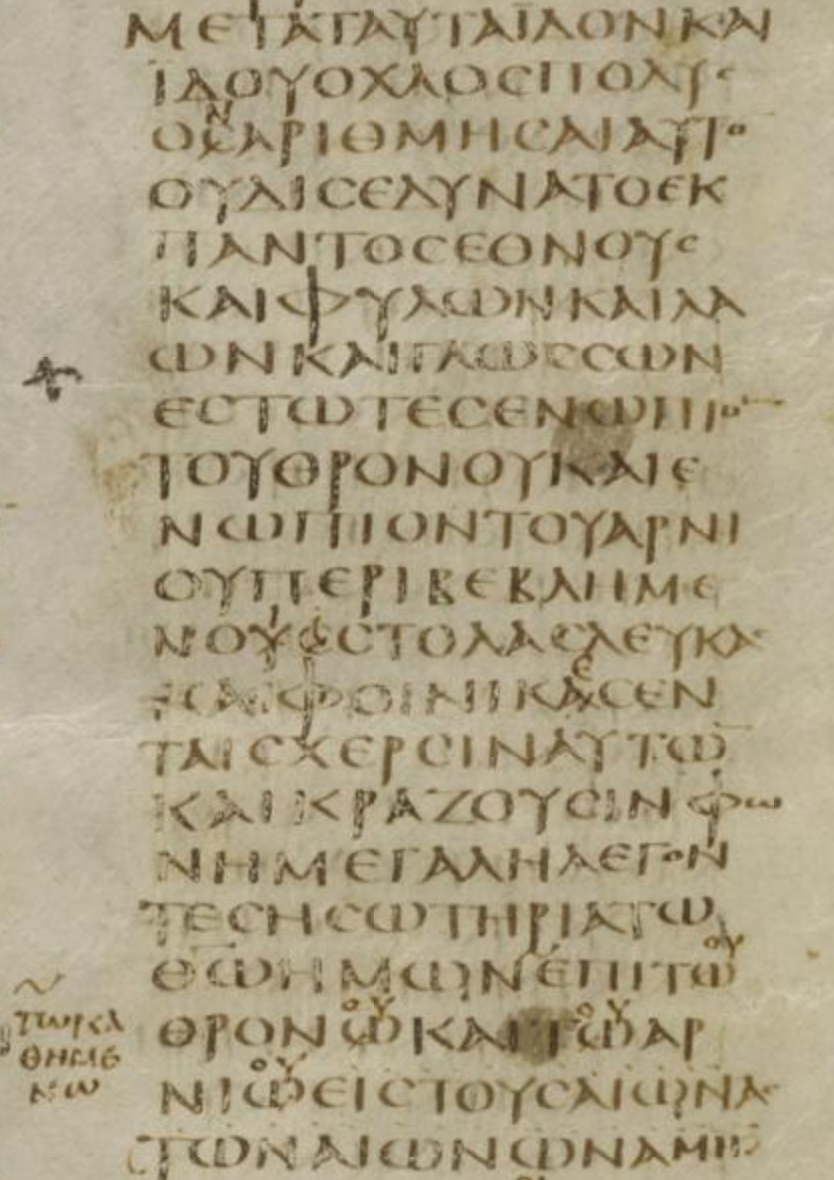 ΜΕΤΑΤΑΥΤΑΙΔΟΝΚΑΙ
ΙΔΟΥΟΧΛΟСΠΟΛΥС
ΟΝΑΡΙΘΜΗСΑΙΑΥΤΟ
ΟΥΔΙСΕΔΥΝΑΤΟΕΚ
ΠΑΝΤΟСΕΘΝΟΥС
ΚΑΙΦΥΛΩΝΚΑΙΛΑ
ΩΝΚΑΙΓΛΩССΩΝ
ΕСΤΩΤΕСΕΝΩΠΙΟ
ΤΟΥΘΡΟΝΟΥΚΑΙΕ
ΝΩΠΙΟΝΤΟΥΑΡΝΙ
ΟΥΠΕΡΙΒΕΒΛΗΜΕ
ΝΟΥССΤΟΛΑСΛΕΥΚΑ
ΚΑΙΦΟΙΝΙΚΑΕСΕΝ
ΤΑΙСΧΕΡСΙΝΑΥΤΩ
ΚΑΙΚΡΑΖΟΥСΙΝΦΩ
ΝΗΜΕΓΑΛΗΛΕΓΟΝ
ΤΕСΗСΩΤΗΡΙΑΤΩ
ΘΩΗΜΩΝΕΠΙΤΩΟΥ
ΤΩΚΑ
ΘΗΜΕ
ΝΩ
ΘΡΟΝΩΟΥΚΑΙΤΩΟΥΑΡ
ΝΙΩΟΥΕΙСΤΟΥСΑΙΩΝΑ
ΤΩΝΑΙΩΝΩΝΑΜΗΝ